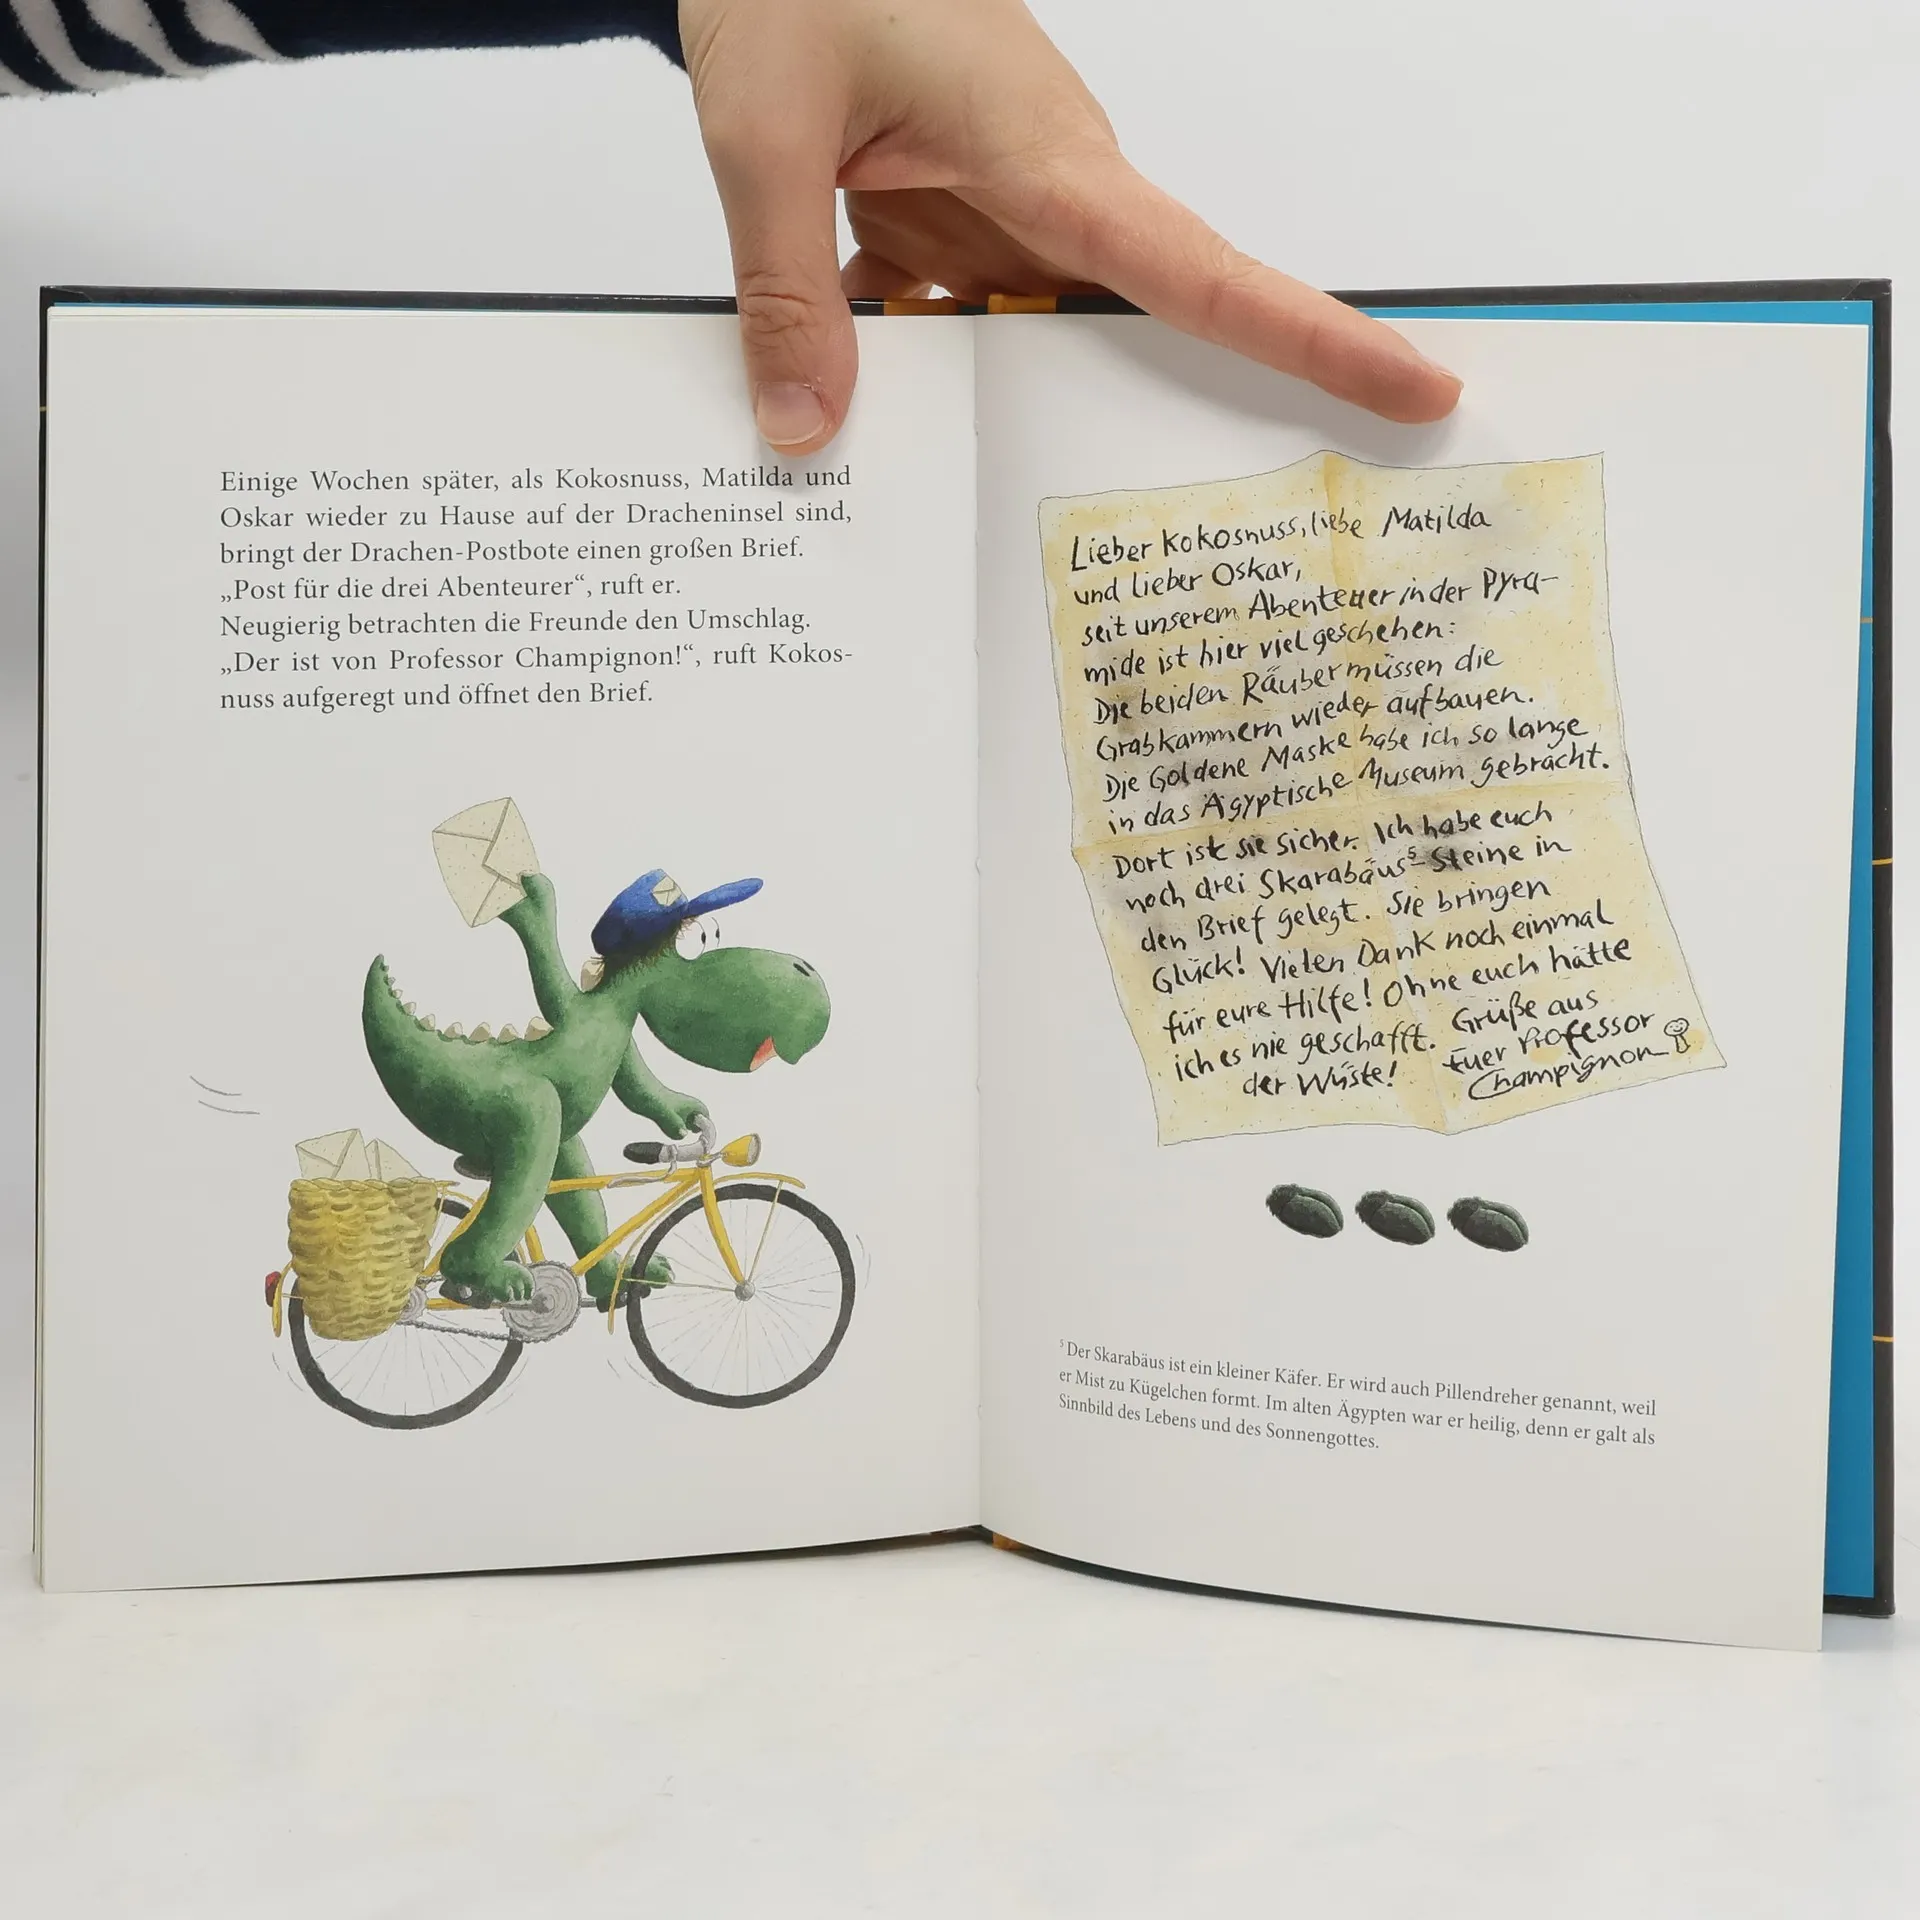 Einige Wochen später, als Kokosnuss, Matilda und
Oskar wieder zu Hause auf der Dracheninsel sind,
bringt der Drachen-Postbote einen großen Brief.
„Post für die drei Abenteurer“, ruft er.
Neugierig betrachten die Freunde den Umschlag.
„Der ist von Professor Champignon!“, ruft Kokos-
nuss aufgeregt und öffnet den Brief.
Lieber Kokosnuss, liebe Matilda
und lieber Oskar,
seit unserem Abenteuer in der Pyra-
mide ist hier viel geschehen:
Die beiden Räuber müssen die
Grabkammern wieder aufbauen.
Die Goldene Maske habe ich so lange
in das Ägyptische Museum gebracht.
Dort ist sie sicher. Ich habe euch
noch drei Skarabäus⁵-Steine in
den Brief gelegt. Sie bringen
Glück! Vielen Dank noch einmal
für eure Hilfe! Ohne euch hätte
ich es nie geschafft. Grüße aus
der Wüste! Euer Professor
Champignon
⁵ Der Skarabäus ist ein kleiner Käfer. Er wird auch Pillendreher genannt, weil
er Mist zu Kügelchen formt. Im alten Ägypten war er heilig, denn er galt als
Sinnbild des Lebens und des Sonnengottes.